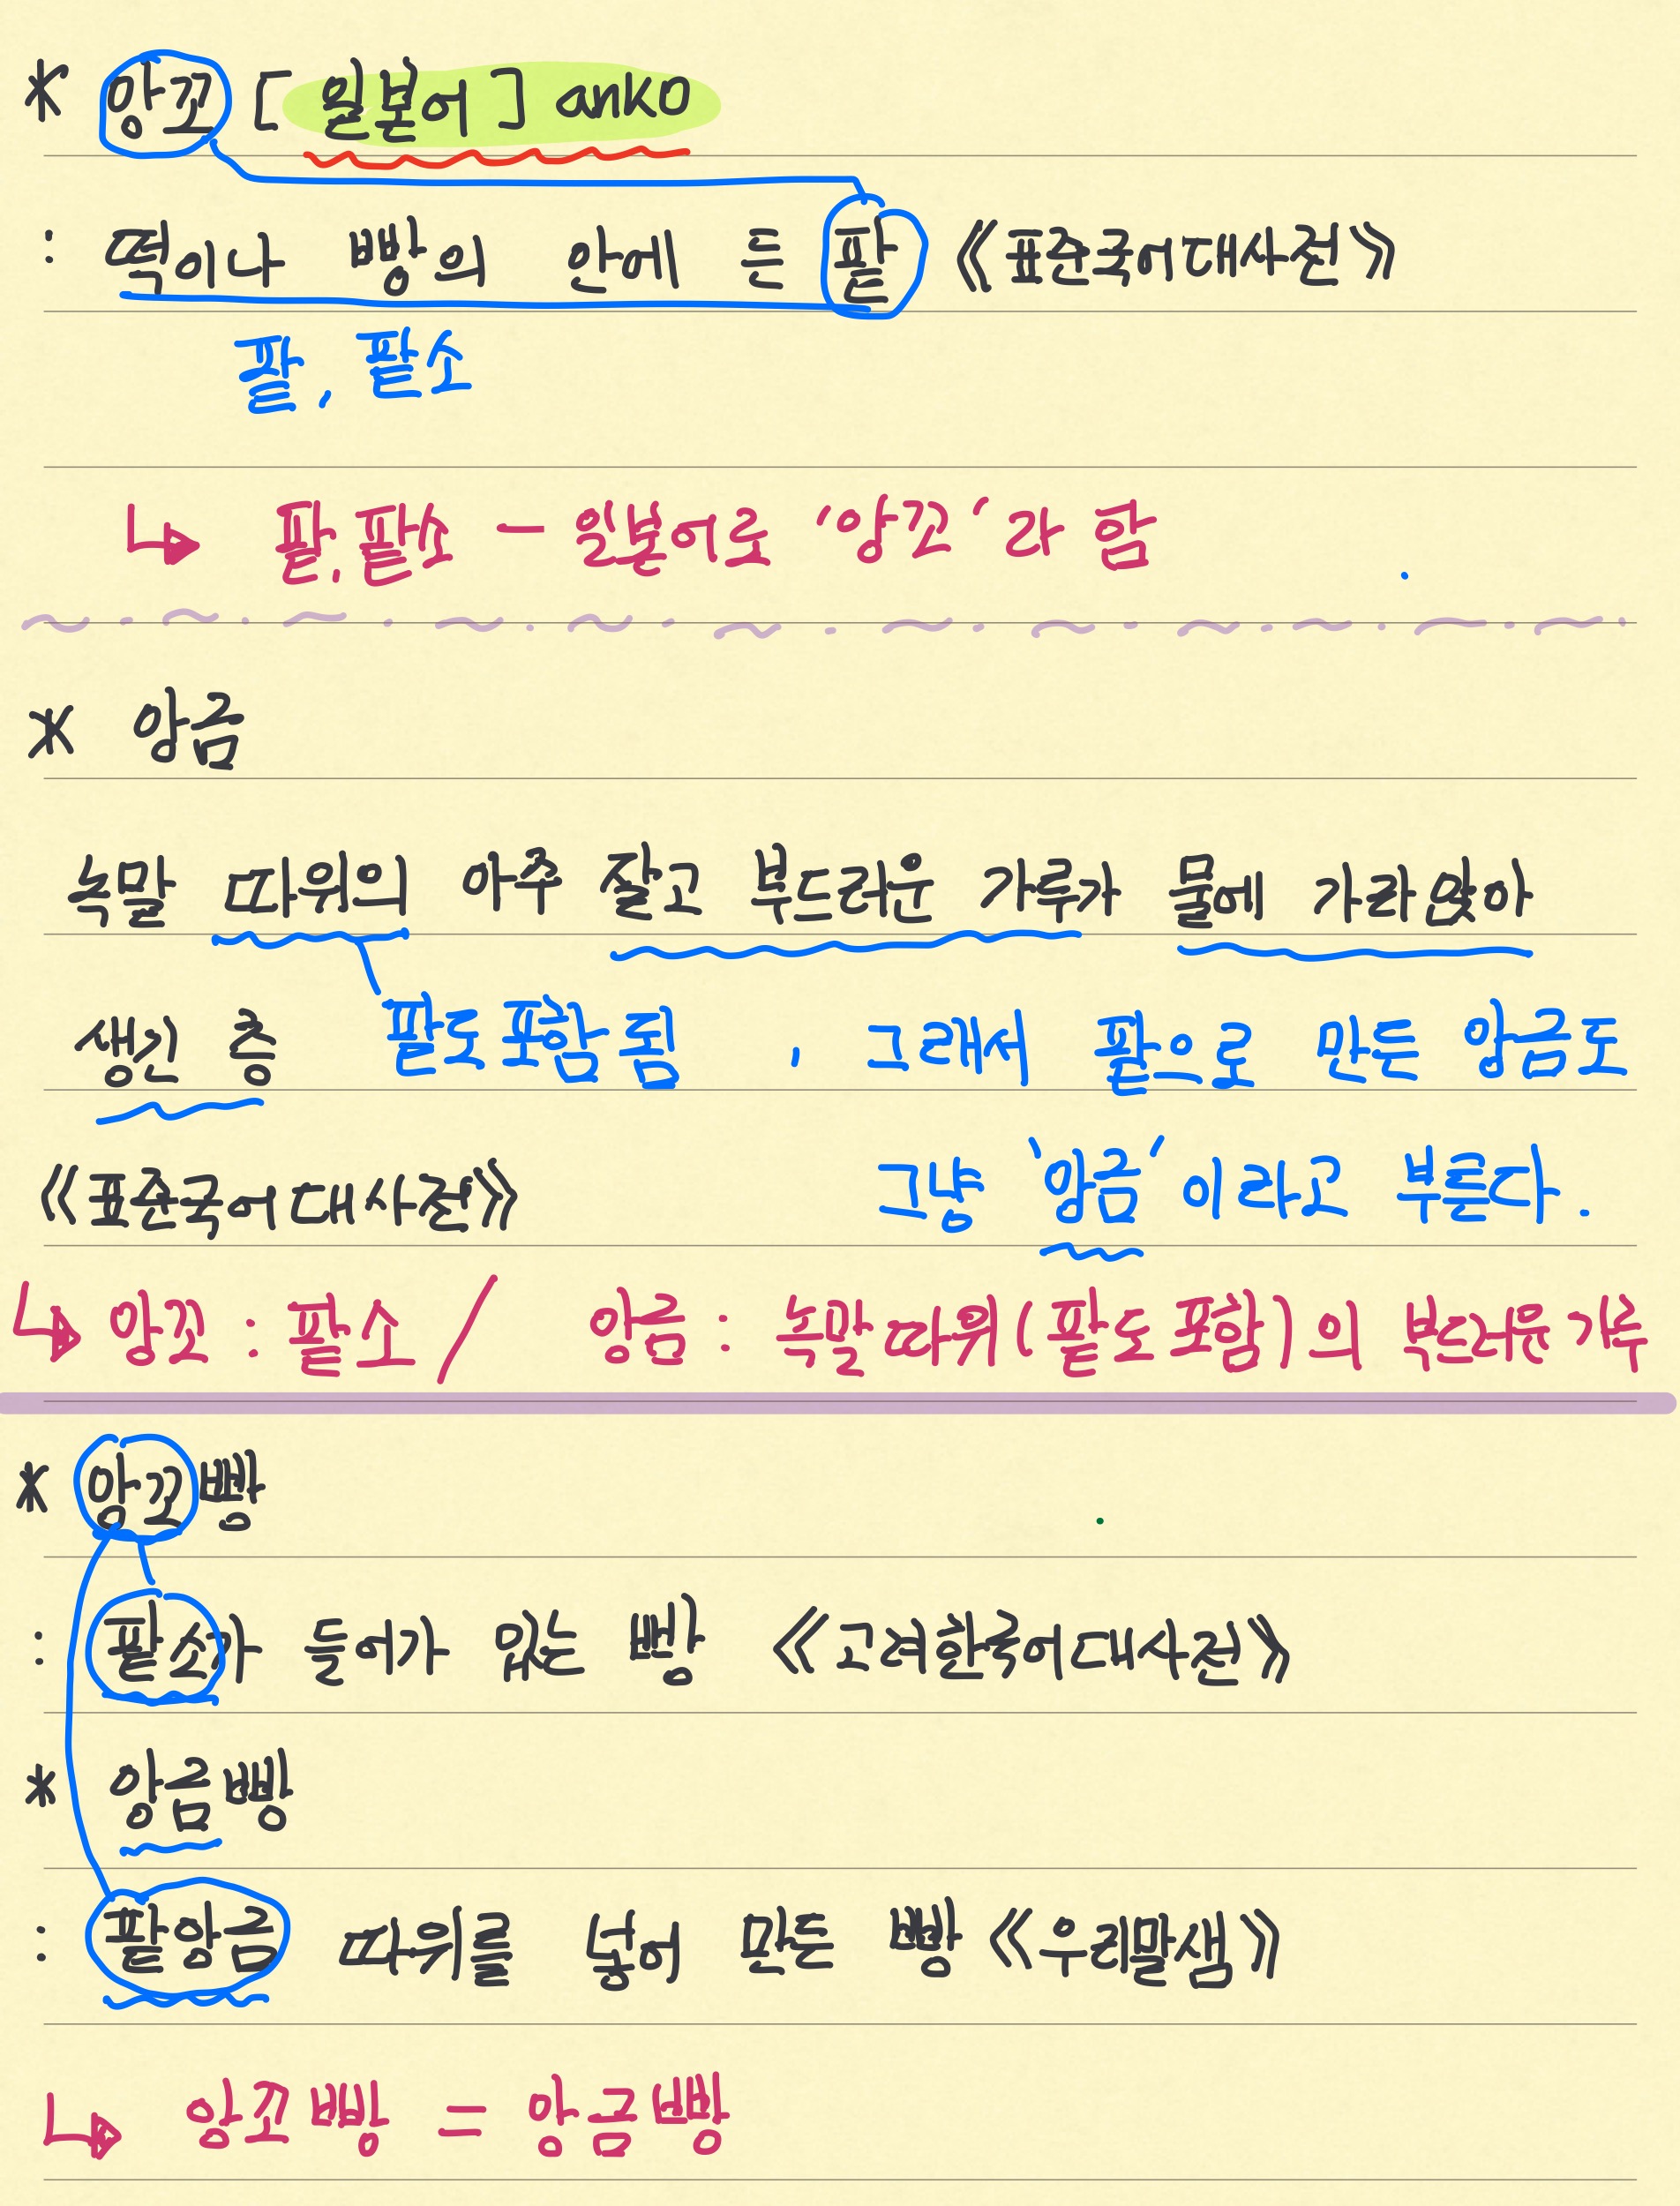 * 앙꼬 [일본어] anko
: 떡이나 빵의 안에 든 팥 《표준국어대사전》
팥, 팥소
↳ 팥, 팥소 - 일본어로 '앙꼬'라 함
* 앙금
녹말 따위의 아주 잘고 부드러운 가루가 물에 가라앉아
생긴 층 팥도 포함됨, 그래서 팥으로 만든 앙금도
《표준국어대사전》 그냥 '앙금'이라고 부른다.
↳ 앙꼬 : 팥소 / 앙금 : 녹말따위(팥도 포함)의 부드러운 가루
* 앙꼬빵
: 팥소가 들어가 있는 빵 《고려한국어대사전》
* 앙금빵
: 팥앙금 따위를 넣어 만든 빵 《우리말샘》
↳ 앙꼬빵 = 앙금빵